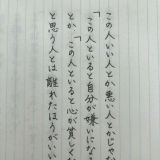 この人いい人とか悪い人とかじゃな
「この人といると自分が嫌いにな
とか「この人といると心が貧しくな
と思う人とは離れたほうがいい